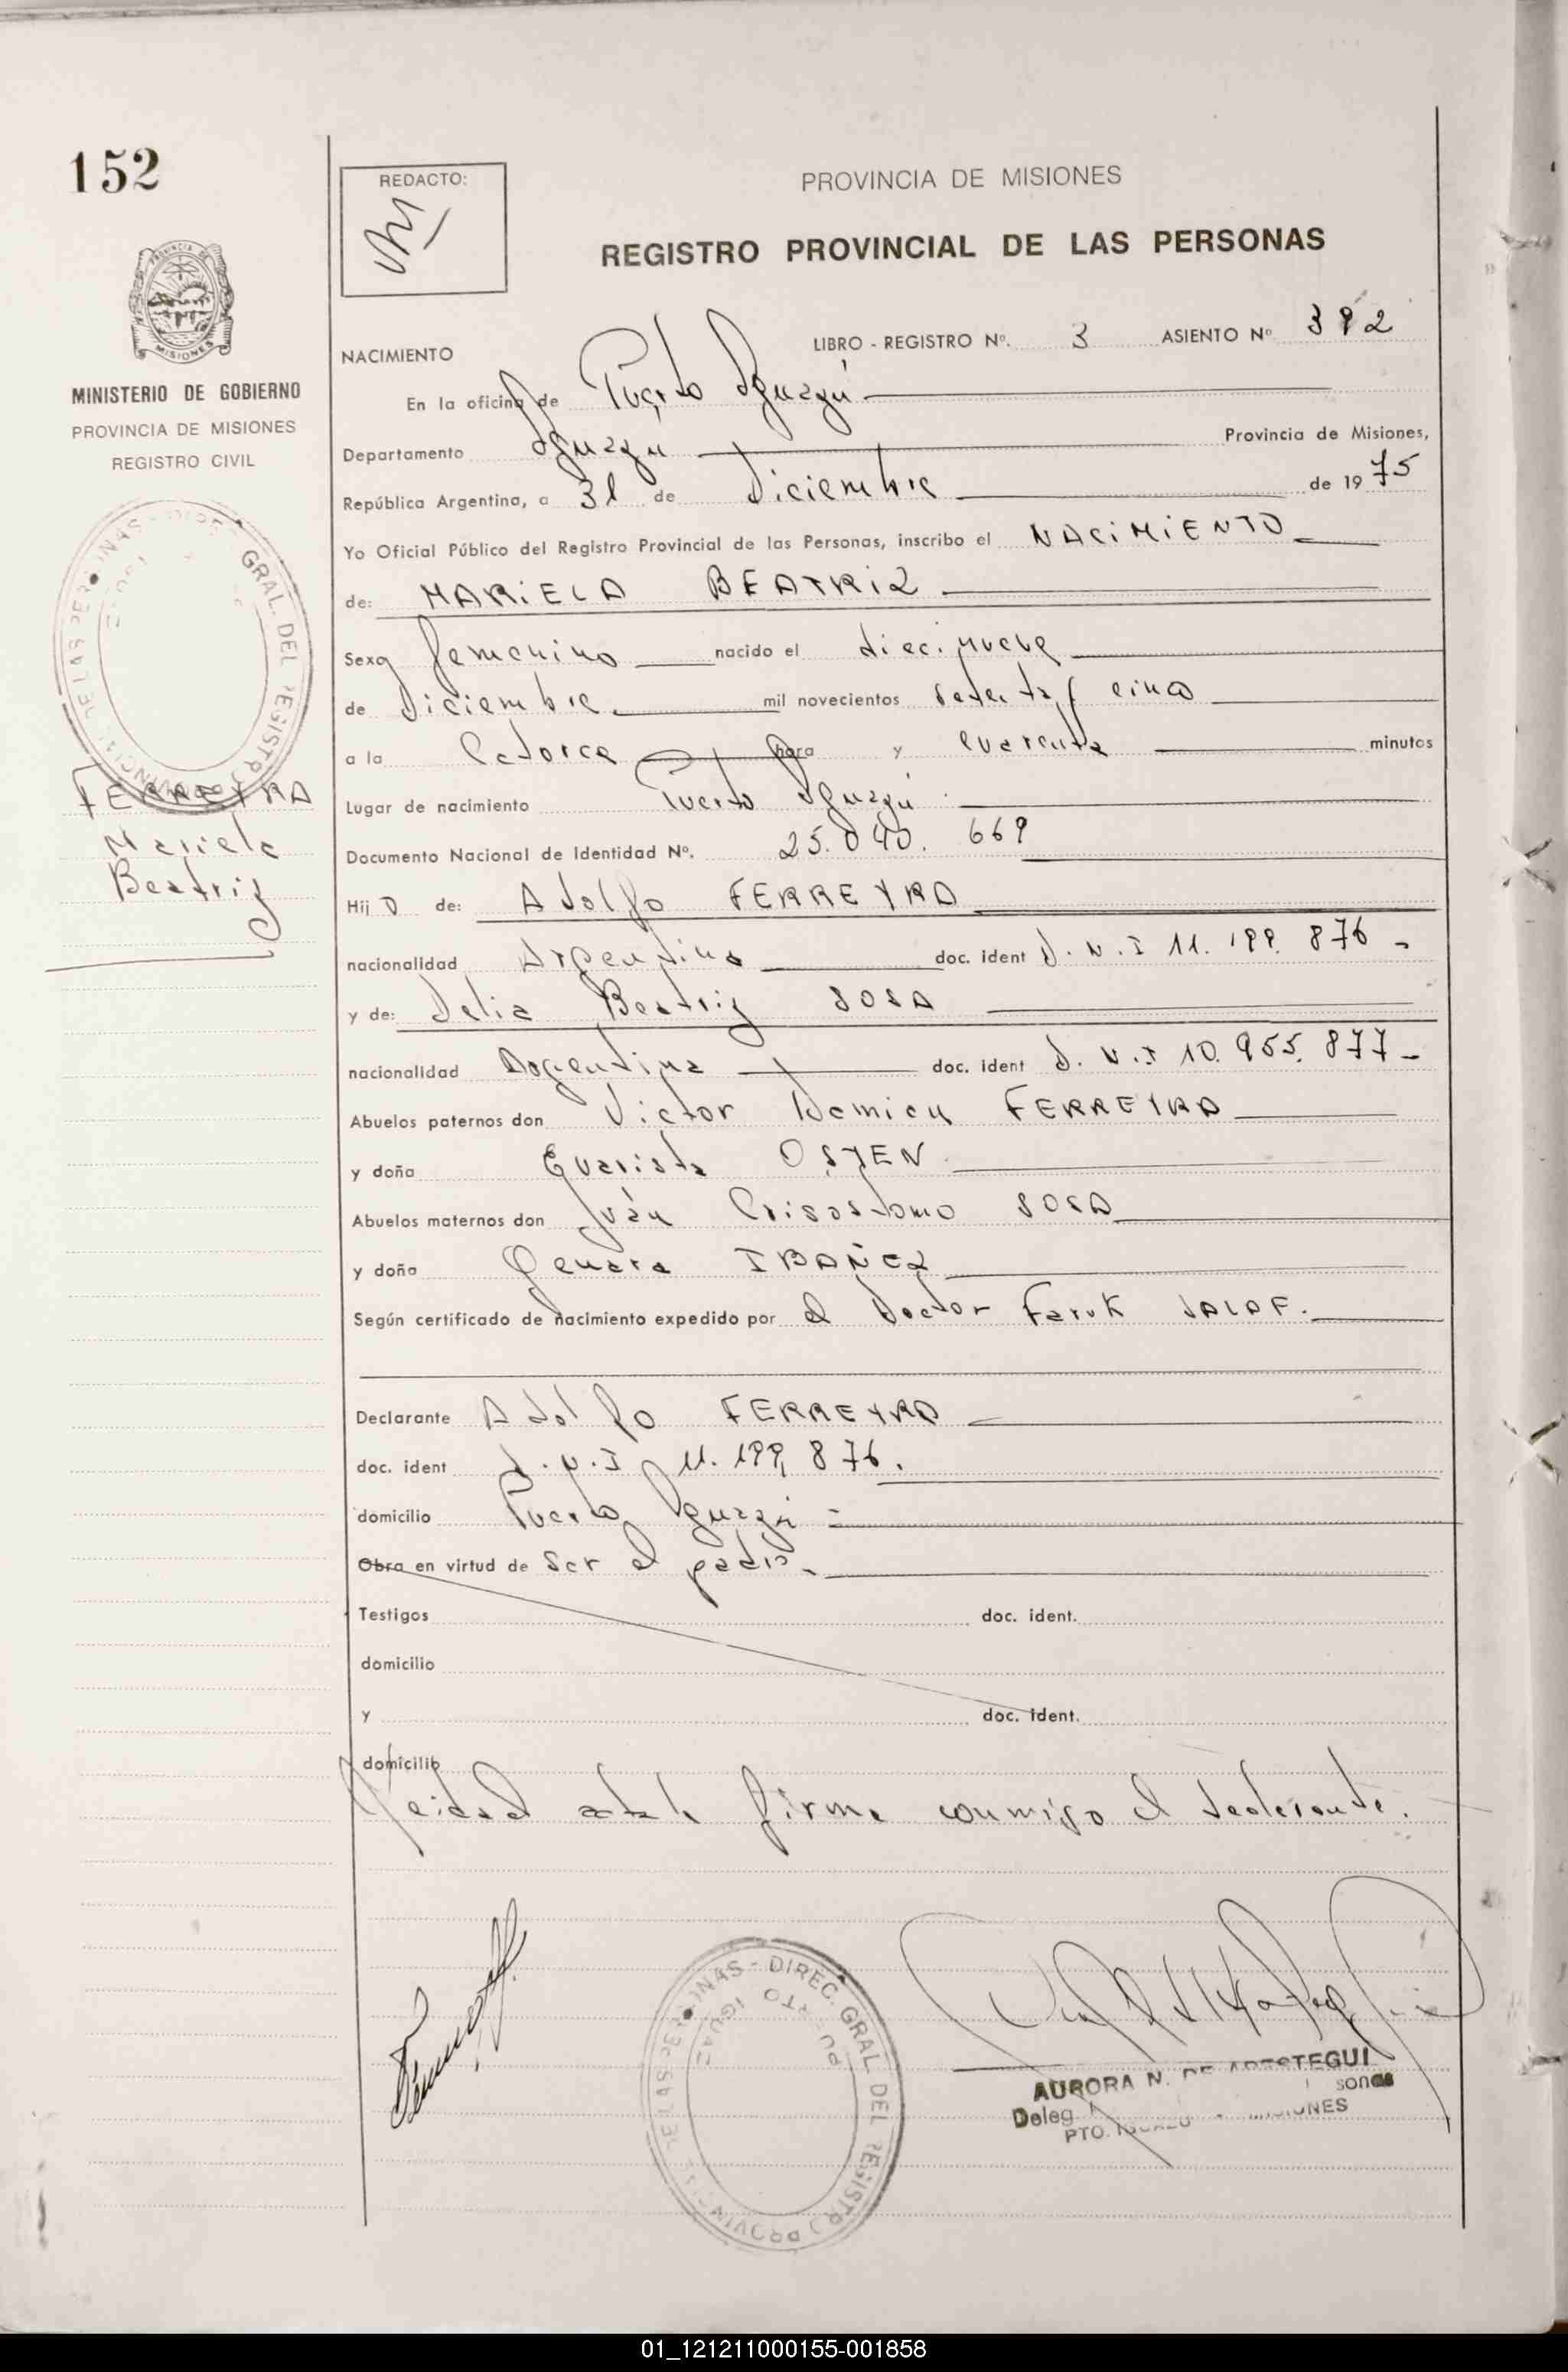 152
REDACTO:
PROVINCIA DE MISIONES
REGISTRO PROVINCIAL DE LAS PERSONAS
MINISTERIO DE GOBIERNO
PROVINCIA DE MISIONES
REGISTRO CIVIL
NACIMIENTO
LIBRO - REGISTRO Nº. 3 ASIENTO Nº 392
En la oficina de Puerto Iguazú
Departamento Iguazú Provincia de Misiones,
República Argentina, a 31 de Diciembre de 1975
Yo Oficial Público del Registro Provincial de las Personas, inscribo el NACIMIENTO
de: MARIELA BEATRIZ
Sexo femenino nacido el diecinueve
de Diciembre mil novecientos setenta y cinco
a la Catorce hora y cuarenta minutos
FERREYRA
Mariela
Beatriz
Lugar de nacimiento Puerto Iguazú
Documento Nacional de Identidad Nº. 25.040.669
Hij a de: Adolfo FERREYRA
nacionalidad Argentina doc. ident D.N.I 11.199.876 -
y de: Delia Beatriz SOSA
nacionalidad Argentina doc. ident D.N.I 10.955.877 -
Abuelos paternos don Victor Damian FERREYRA
y doña Evarista OSTEN
Abuelos maternos don Juan Crisostomo SOSA
y doña Genara IBAÑEZ
Según certificado de nacimiento expedido por el Doctor Faruk JALAF.
Declarante Adolfo FERREYRA
doc. ident D.N.I 11.199.876.
domicilio Puerto Iguazú
Obra en virtud de ser el padre
Testigos doc. ident.
domicilio
y doc. ident.
domicilio
Leida el acta la firma conmigo el declarante.
DIREC. GRAL. DEL REGISTRO PROVINCIAL DE LAS PERSONAS
PUERTO IGUAZU
AURORA N. DE ARESTEGUI
Deleg
PTO. IGUAZU MISIONES
01_121211000155-001858